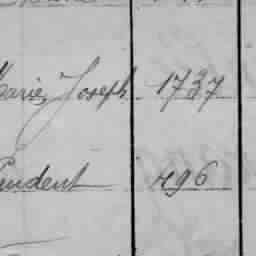 Marie, Joseph 1737
Prudent 496